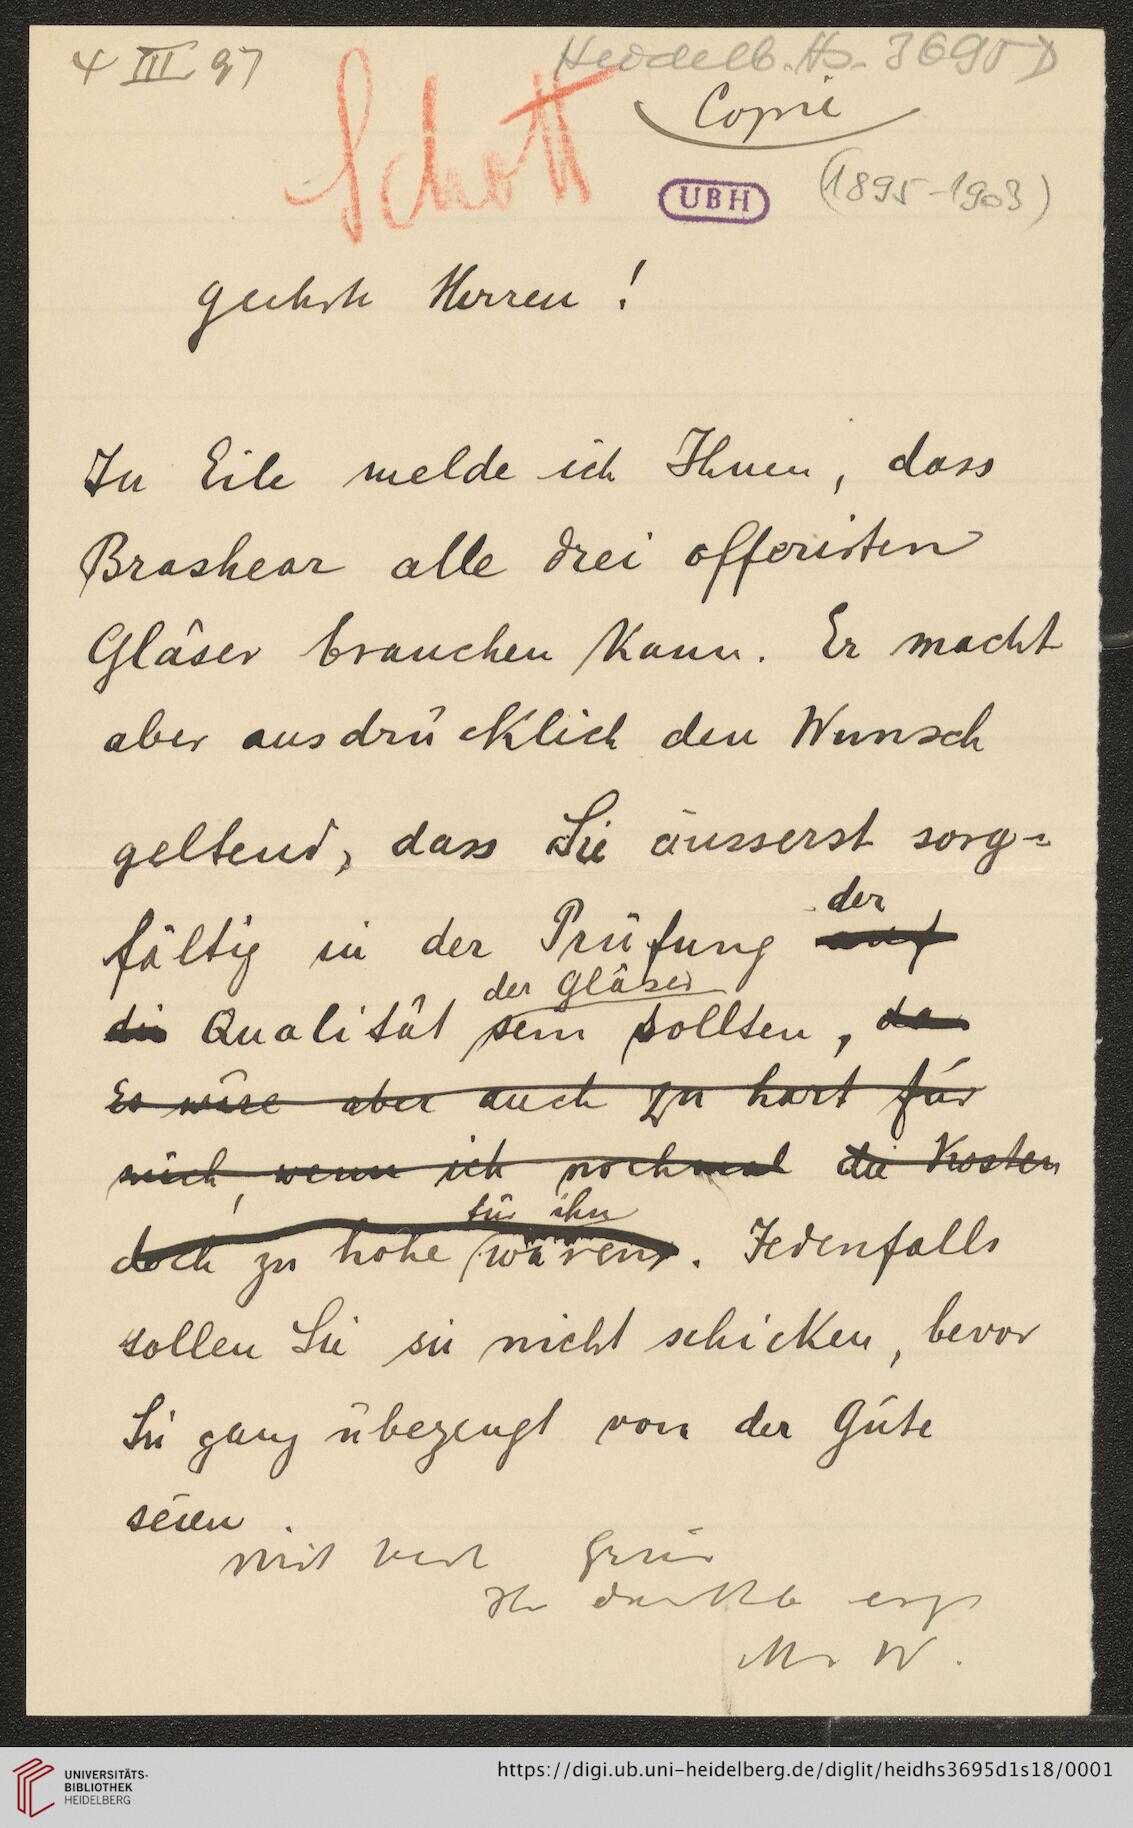 4 III 97
Heidelb. Hs. 3695 D
Schott
Copie
UBH
(1895-1903)
geehrte Herren !
In Eile melde ich Ihnen, dass
Brashear alle drei offerirten
Gläser brauchen kann. Er macht
aber ausdrücklich den Wunsch
geltend, dass Sie äusserst sorg=
fältig in der Prüfung auf der
die Qualität der Gläser sein sollten, da
Es wäre aber auch zu hart für
mich, wenn ich nochmal die Kosten
doch zu hohe für ihn wären. Jedenfalls
sollen Sie sie nicht schicken, bevor
Sie ganz übezeugt von der Güte
seien.
mit Grüss
Ihr erg
M W.
UNIVERSITÄTS-
BIBLIOTHEK
HEIDELBERG
https://digi.ub.uni-heidelberg.de/diglit/heidhs3695d1s18/0001